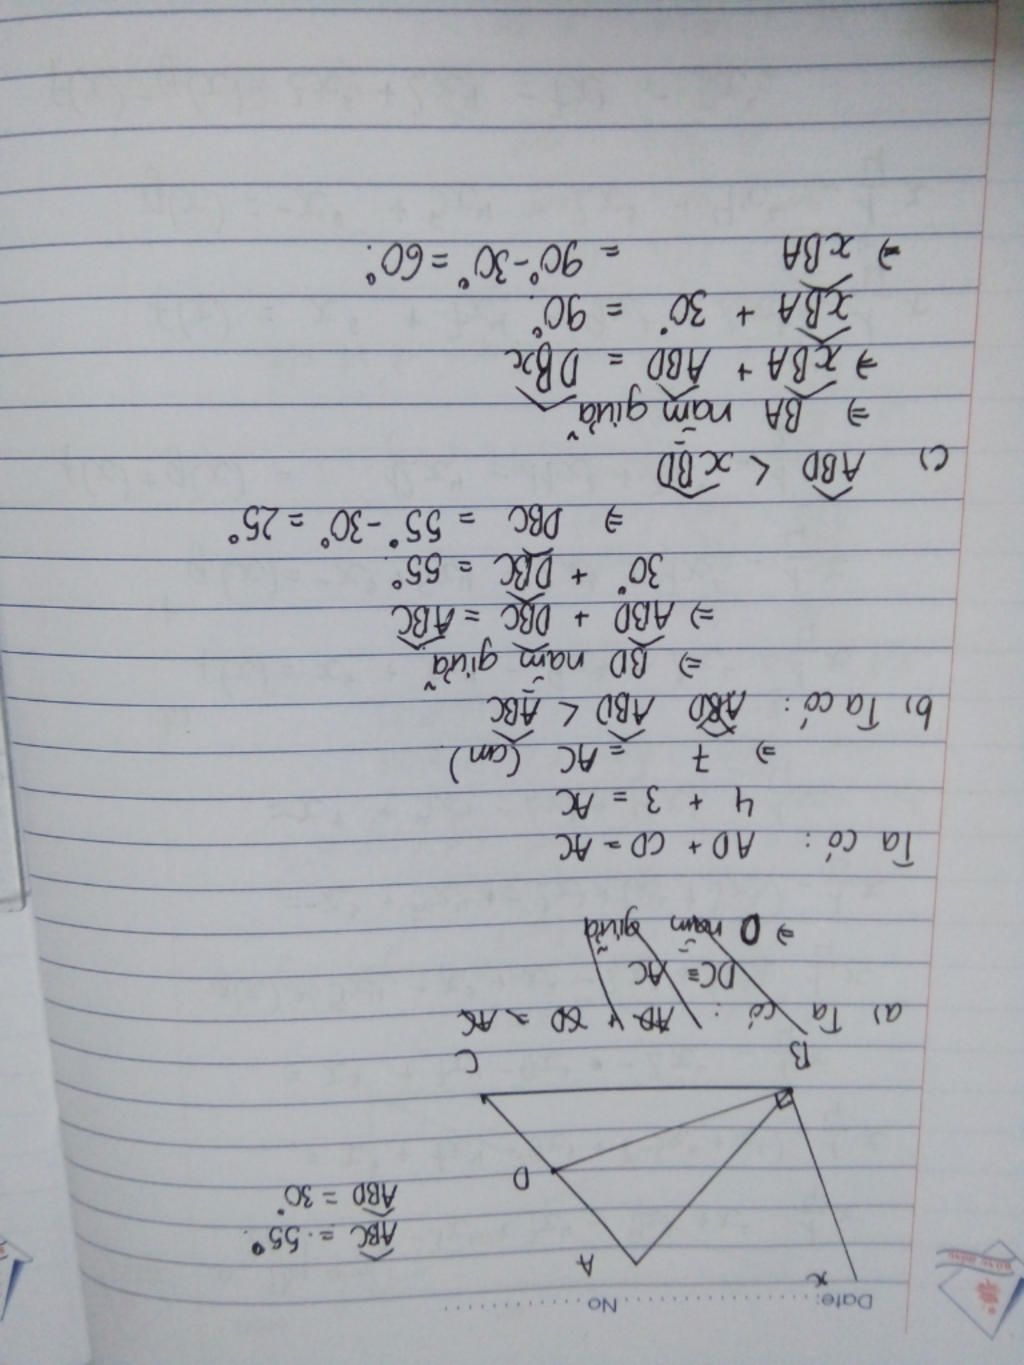 Date: No
x
A
ABC = 55°
ABD = 30°
D
B
C
a) Ta có: AD + CD = AC
DC = AC
⇒ D nằm giữa
Ta có: AD + CD = AC
4 + 3 = AC
⇒ 7 = AC (cm)
b) Ta có: ABD ABD < ABC
⇒ BD nằm giữa
⇒ ABD + DBC = ABC
30° + DBC = 55°
⇒ DBC = 55° - 30° = 25°
c) ABD < xBD
⇒ BA nằm giữa
⇒ xBA + ABD = DBx
xBA + 30° = 90°
⇒ xBA = 90° - 30° = 60°.